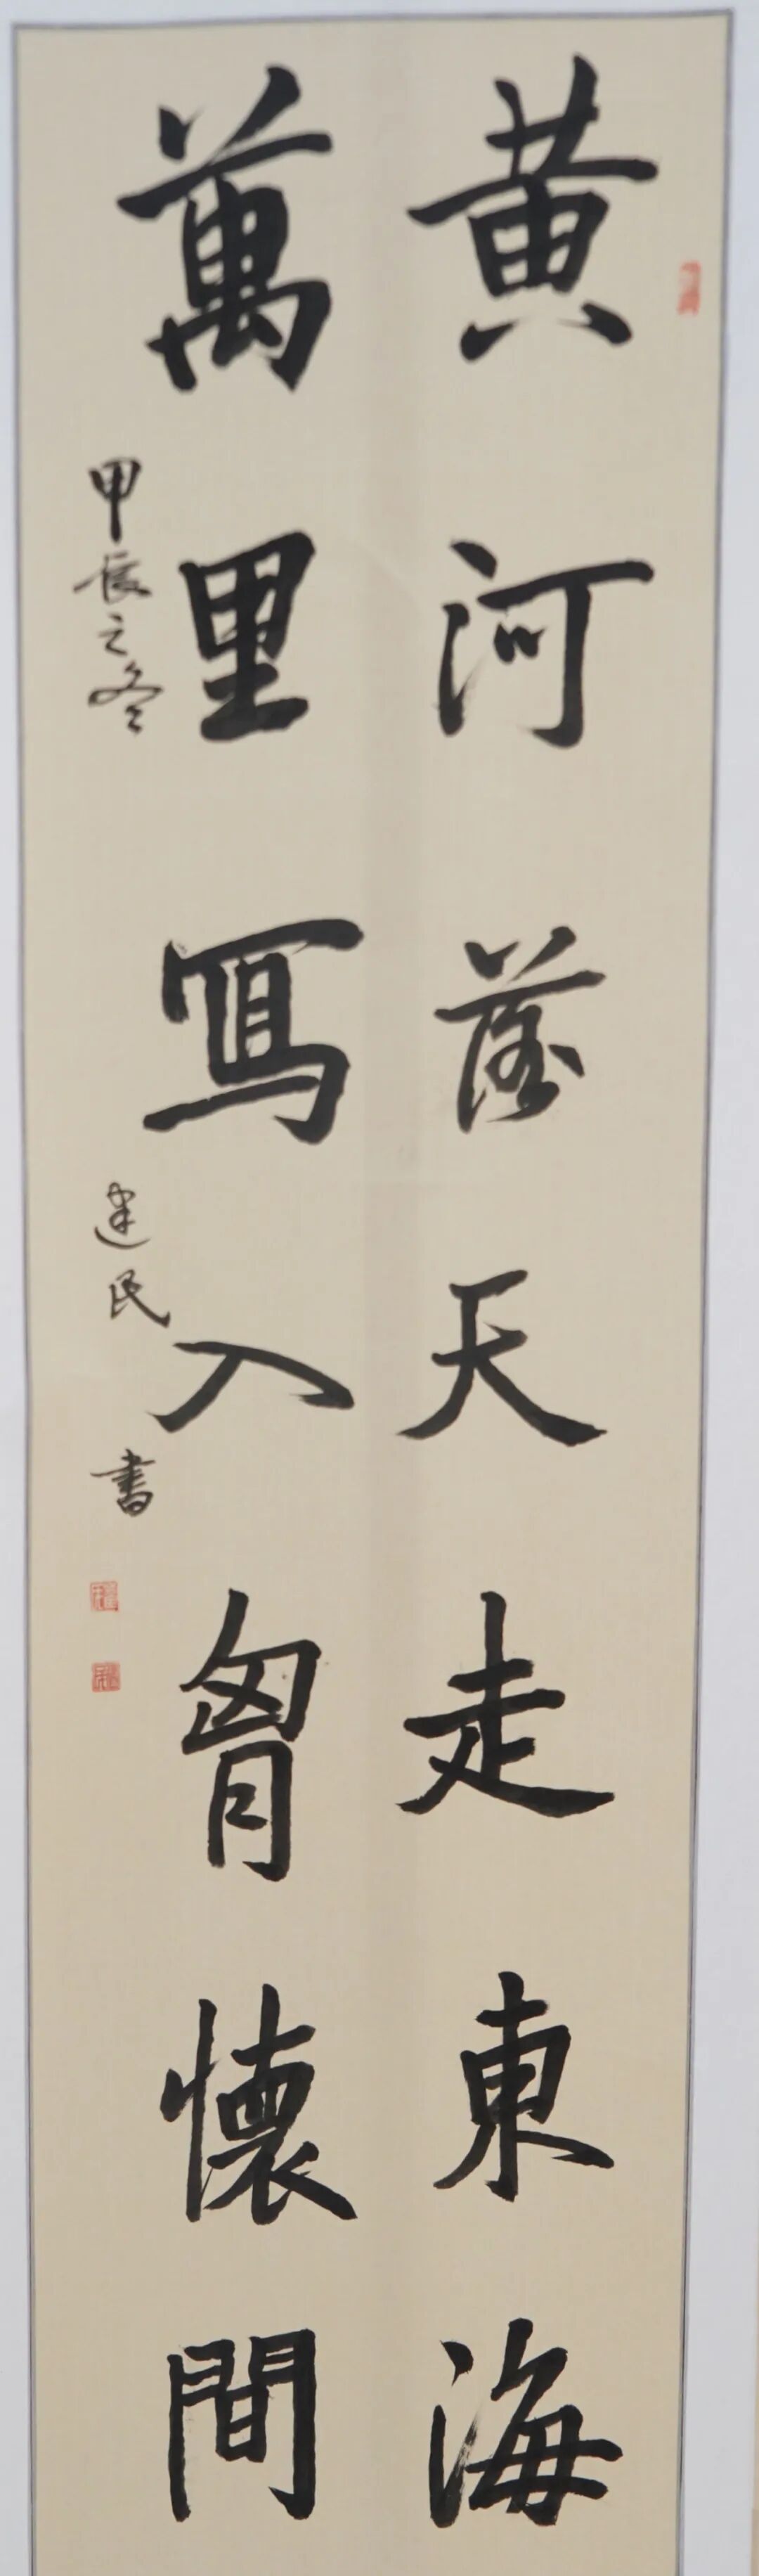 黃河落天走東海
萬里寫入胷懷間
甲辰之冬 建民 書